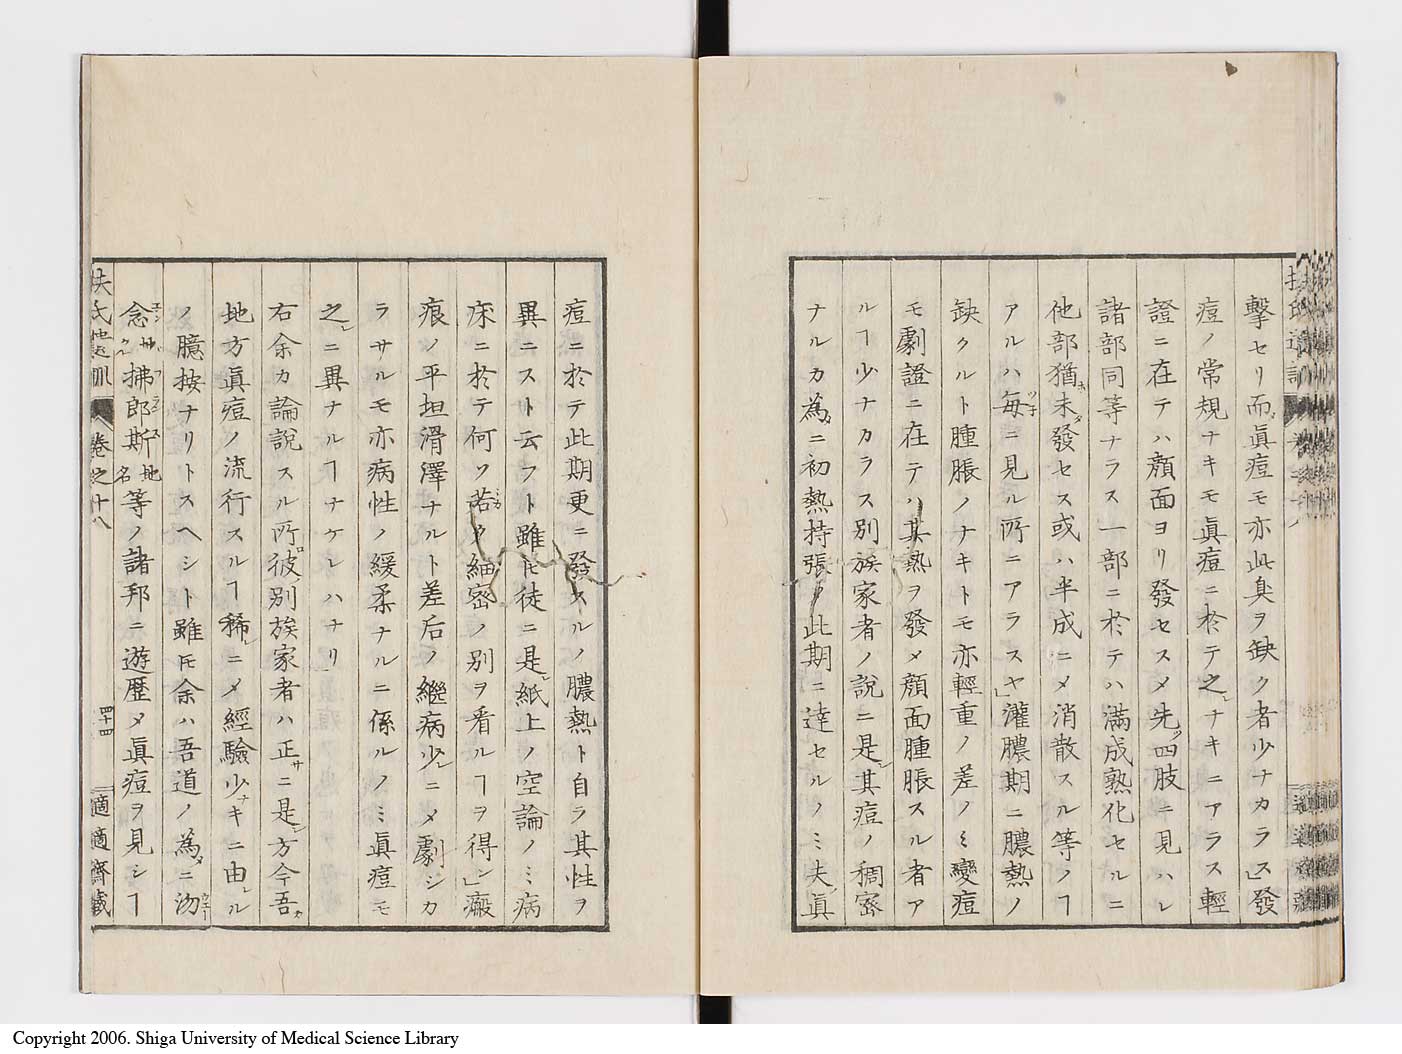 撃セリ而眞痘モ亦此臭ヲ缺ク者少ナカラス」發
痘ノ常規ナキモ眞痘ニ於テ之レナキニアラス輕
證ニ在テハ顔面ヨリ發セスメ先ツ四肢ニ見ハレ
諸部同等ナラス一部ニ於テハ滿成熟化セルニ
他部猶ホ未タ發セス或ハ半成ニメ消散スル等ノヿ
アルハ毎ツ子ニ見ル所ニアラスヤ」灌膿期ニ膿熱ノ
缺クルト腫脹ノナキトモ亦輕重ノ差ノミ變痘
モ劇證ニ在テハ其熱ヲ發メ顔面腫脹スル者ア
ルヿ少ナカラス別族家者ノ說ニ是レ其痘ノ稠密
ナルカ為メニ初熱持張メ此期ニ達セルノミ夫眞
痘ニ於テ此期更ニ發スルノ膿熱ト自ラ其性ヲ
異ニスト云フト雖𪜈徒ニ是レ紙上ノ空論ノミ病
床ニ於テ何ソ若ク細密ノ別ヲ看ルヿヲ得ン」瘢
痕ノ平坦滑澤ナルト差后ノ繼病少レニメ劇シカ
ラサルモ亦病性ノ緩柔ナルニ係ルノミ眞痘モ
之レニ異ナルヿナケレハナリ
右余カ論說スル所彼別族家者ハ正サニ是レ方今吾カ
地方眞痘ノ流行スルヿ稀レニメ經驗少ナキニ由レル
ノ臆按ナリトスヘシト雖𪜈余ハ吾道ノ為メニ沕
念地拂郎斯地名等ノ諸邦ニ遊歷メ眞痘ヲ見シヿ
扶氏經驗遺訓 卷之十八 四十四 適適齋藏